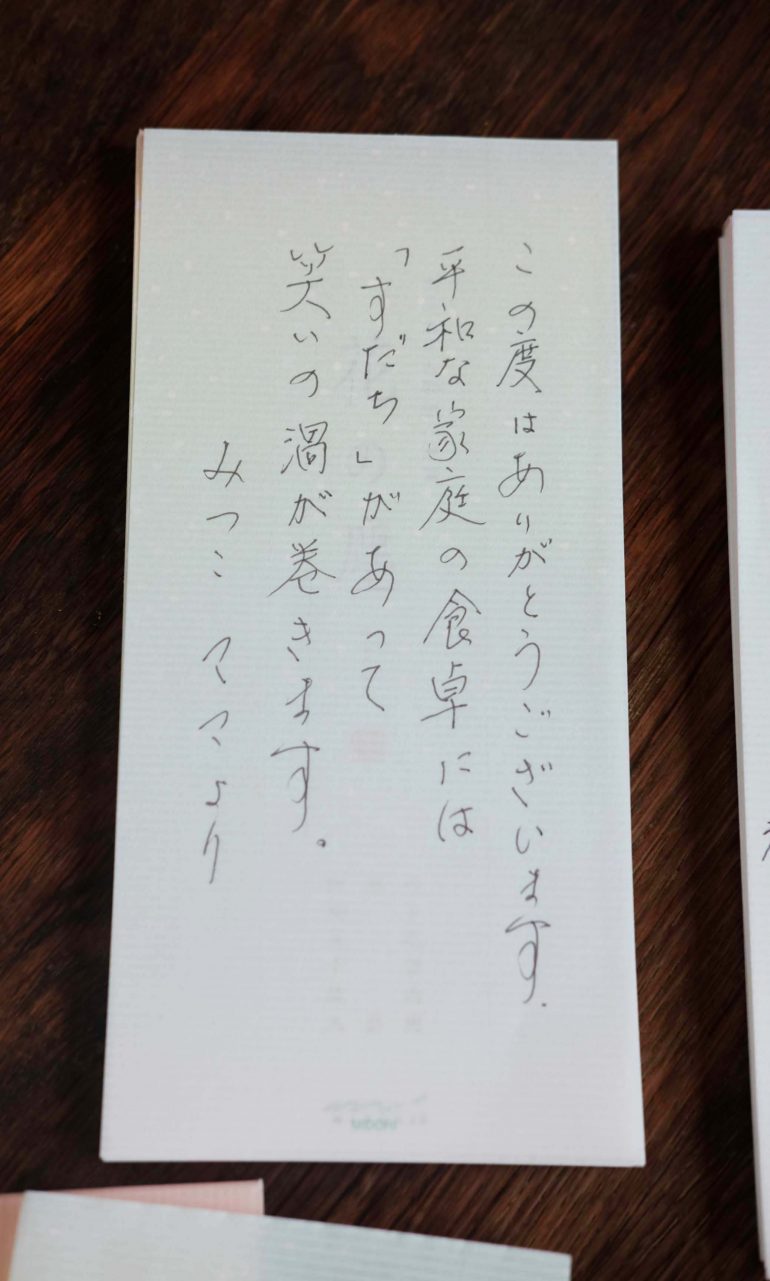 この度はありがとうございます.
平和な家庭の食卓には
「すだち」があって
笑いの渦が巻きます。
みつこ ママより